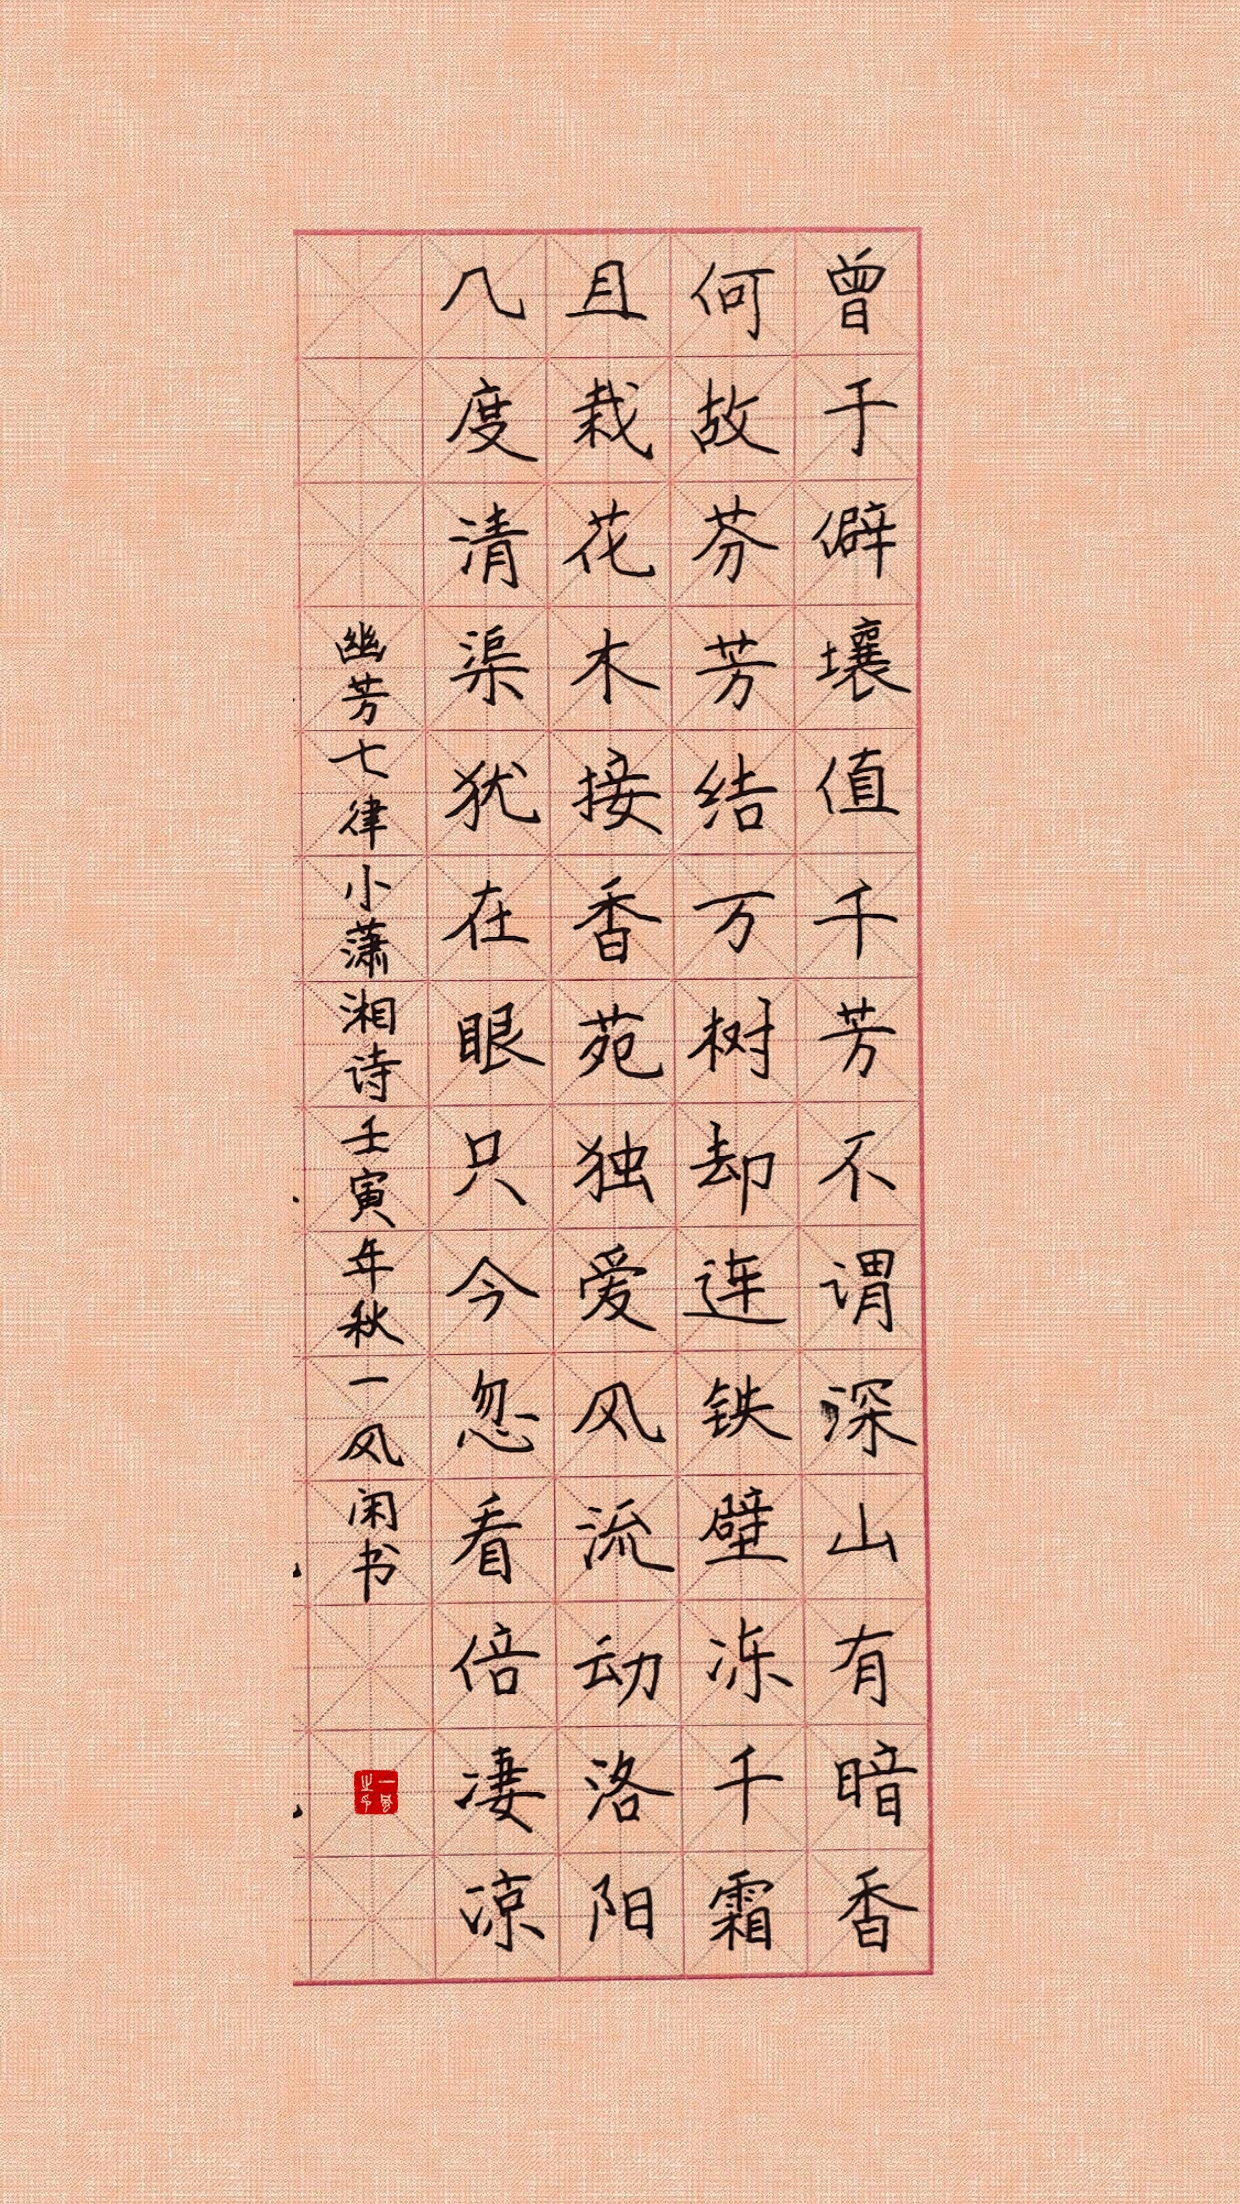 曾于僻壤值千芳不谓深山有暗香
何故芬芳结万树却连铁壁冻千霜
且栽花木接香苑独爱风流动洛阳
几度清渠犹在眼只今忽看倍凄凉
幽芳七律小潇湘诗壬寅年秋一风闲书
一风之印